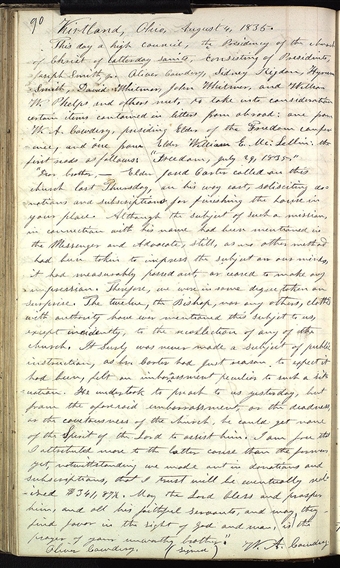 90
Kirtland, Ohio, August 4, 1835.
This day a high council, the Presidency of the church
of Christ of Latterday saints, consisting of Presidents,
Joseph Smith, jr. Oliver Cowdery, Sidney Rigdon, Hyrum
Smith, David Whitmer, John Whitmer, and William
W. Phelps and others met, to take into consideration
certain items contained in letters from abroad: one from
W. A. Cowdery, presiding Elder of the Freedom confer-
ence, and one from Elder William E. Mc.Lellin: the
first reads as follows: "Freedom, july 29, 1835."
"Dear brother,— Elder Jared Carter called on this
church last Thursday, on his way east, soliciting do-
nations and subscriptions for finishing the house in
your place. Although the subject of such a mission,
in connection with his name had been mentioned in
the Messenger and Advocate, still, as no other method
had been taken to impress the subject on our minds,
it had measurably passed out, or ceased to make any
impression. Therefore, we were in some degree taken on
surprise. The twelve, the Bishop, nor any others, clothed
with authority have ever mentioned this subject to us,
except incidently, to the recollection of any of the
church. It surely was never made a subject of public
instruction, as br. Carter had just reason to expect it
had been, felt an embarrassment peculiar to such a sit-
uation. He undertook to preach to us yesterday, but
from the aforesaid embarrassment, or the deadness,
or the covetousness of the church, he could get none
of the Spirit of the Lord to assist him. I am free to
I attributed more to the latter cause than the former,
yet, notwithstanding we made out in donations and
subscriptions, that I trust will be eventually real-
ized $341,87½. May the Lord bless and prosper
him, and all his faithful servants, and may they
find favor in the sight of God and man, is the
prayer of your unworthy brother."
Oliver Cowdery. (signed) W. A. Cowdery